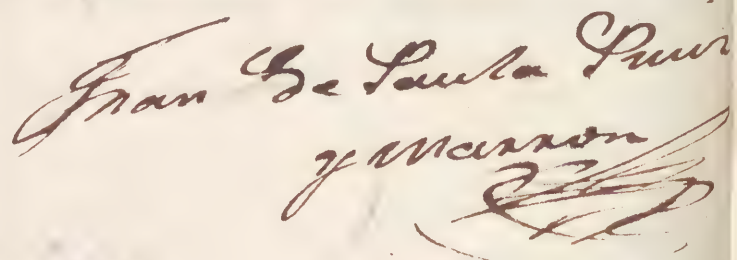 Fran De Paula
y Marron